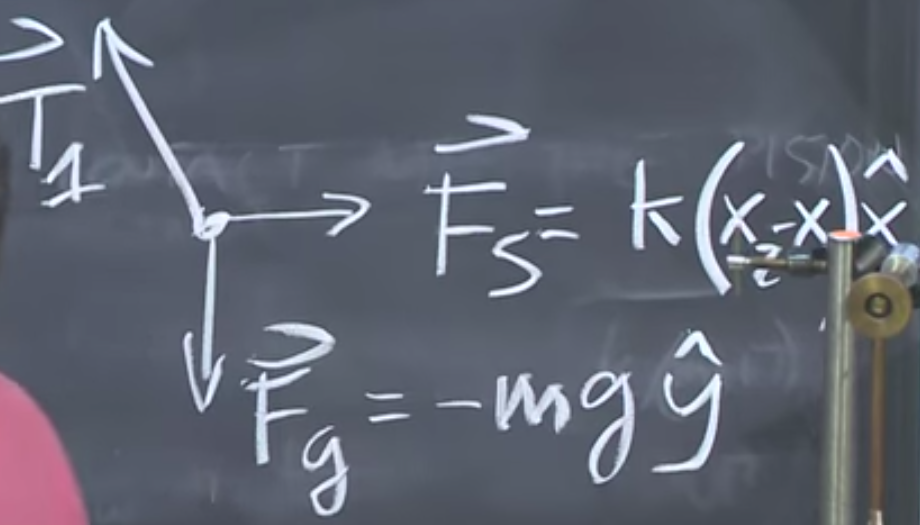 T⃗₁
F⃗ₛ = k(x₂-x)x̂
F⃗g = -mgŷ